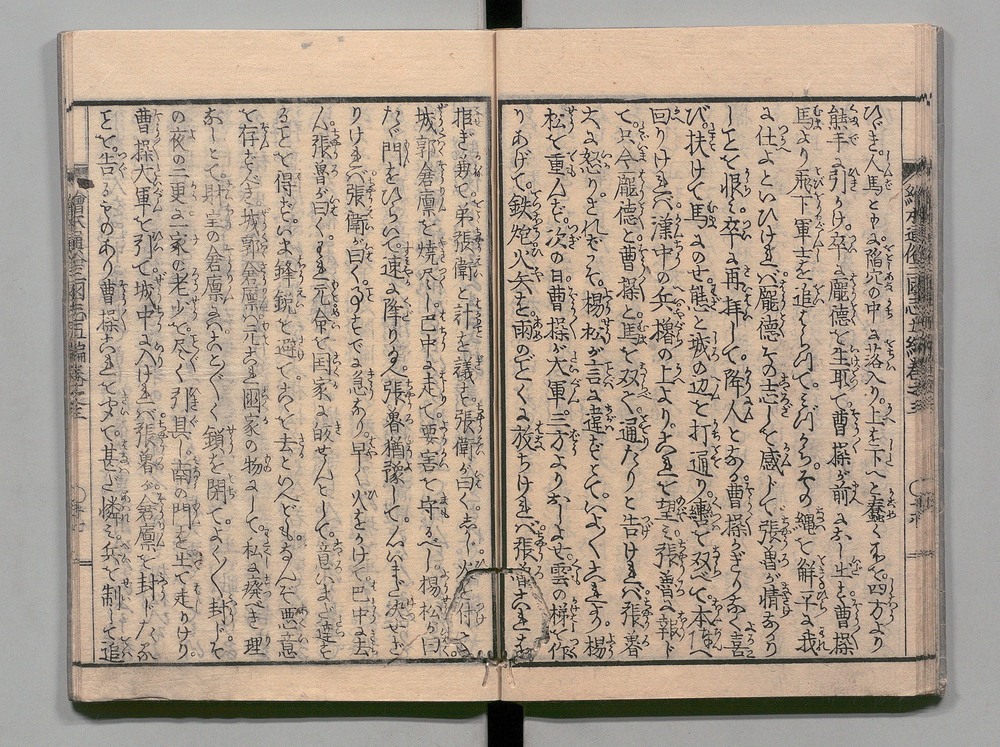 ひゞき。人馬ともに陥穴の中に落入り。上を下へと蠢く所で四方より
熊手に引かけ。卒に龐德を生取て曹操が前になし出と曹操
馬より乗下軍士を追はらふて。みづからその縄を解平に我
に仕よといひければ龐德その志しを感じて張魯が情なかり
しことを恨み卒に再拜して。降人となる曹操かぎりなく喜
び。扶けて馬にのせ態と城の辺を打通り轡を双べて。本陣へ
回りければ漢中の兵櫓の上より。これを望み張魯に報じ
て只今龐德と曹操と馬を双べ通たりと告ければ張魯
大に怒り。されどこそ。楊松が言に違はずとていよ〱これを
松を重んず。次の日曹操が大軍三方よりおしよせ雲の梯を作
りあげて。鉄炮火矢を雨のごとくに放ちければ張魯これを
拒ぎ兼て。弟張衛と計を議す張衛が曰く。火を付
城郭倉廪を焼尽し。巴中に走て。要害を守るべし。楊松が曰
たゞ門をひらいて。速に降り給へ張魯猶豫していまだ決せざ
りければ張衛が曰く。事すでに急なり早く火をかけて巴中に去
給へ張魯が曰く。われ元命を国家に皈せんとして。意いまだ達す
ることを得ず。いま鋒鋭を避てこゝを去といへどもなんぞ悪意
を存ずべき城郭倉廪は元これ国家の物にして。私に廃べき理
なしとて財宝の倉廪ことごとく鎖を閉てよく〱封じ。そ
の夜の二更に一家の老少を尽く引具し。南の門を出て走りけり。
曹操大軍を引て城中に入ければ張魯が倉廪を封じたる
ことを。告るものあり曹操これをきいて。甚だ憐み兵を制して追